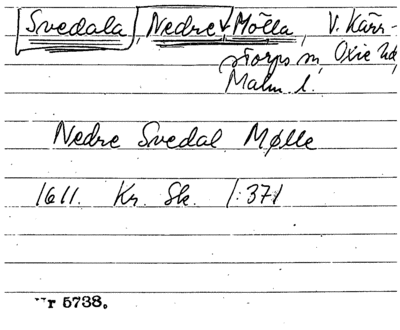 Svedala, Nedre Mölla, V. Kärr-
storps sn, Oxie hd,
Malm. l.
Nedre Svedal Mølle
1611. Kr. Sk. 1:371
Nr 5738.